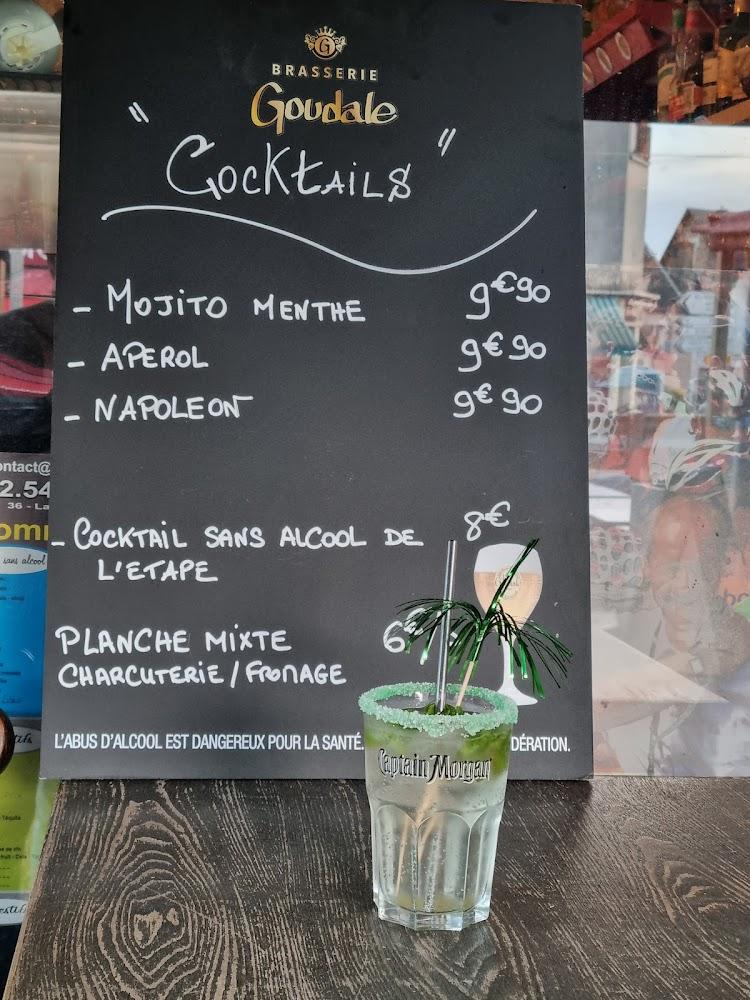 G
BRASSERIE
Goudale
" COCKTAILS "
- MOJITO MENTHE 9€90
- APEROL 9€90
- NAPOLEON 9€90
- COCKTAIL SANS ALCOOL DE 8€
L'ETAPE
PLANCHE MIXTE 6
CHARCUTERIE / FROMAGE
L'ABUS D'ALCOOL EST DANGEREUX POUR LA SANTÉ. DÉRATION.
Captain Morgan
ontact@
2.54
36 - La
sans alcool
Téquila